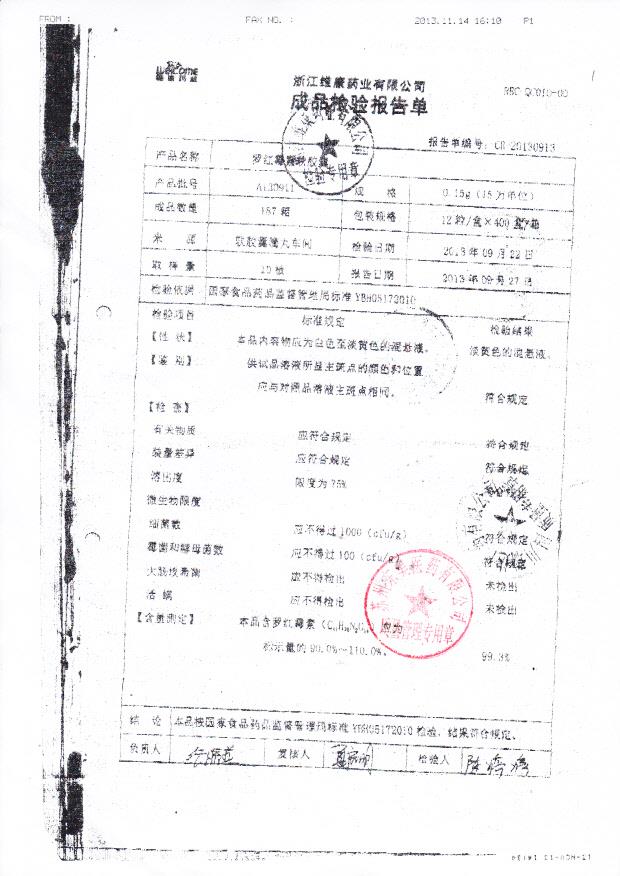 FROM :
FAX NO. :
2013.11.14 16:10 P1
Welcome
浙江维康药业有限公司
成品检验报告单
报告单编号: CR-20130913
产品名称
产品批号 A130911 规 格 0.15g (15万单位)
成品数量 187箱 包装规格 12粒/盒×400盒/箱
来 源 软胶囊滴丸车间 检验日期 2013年09月22日
取样量 10板 报告日期 2013年09月27日
检验依据 国家食品药品监督管理局标准YBH05172010
检验项目 标准规定 检验结果
【性 状】 本品内容物应为白色至淡黄色的混悬液。 淡黄色的混悬液。
【鉴 别】 供试品溶液所显主斑点的颜色和位置
应与对照品溶液主斑点相同。 符合规定
【检 查】
有关物质 应符合规定 符合规定
装量差异 应符合规定 符合规定
溶出度 限度为75%
微生物限度
细菌数 应不得过1000 (cfu/g) 符合规定
霉菌和酵母菌数 应不得过100 (cfu/g) 符合规定
大肠埃希菌 应不得检出 未检出
活 螨 应不得检出 未检出
【含量测定】 本品含罗红霉素 应为
标示量的90.0%~110.0%。 99.3%
结 论 本品按国家食品药品监督管理局标准YBH05172010检验,结果符合规定。
负责人 复核人 检验人
检验专用章
质量管理专用章